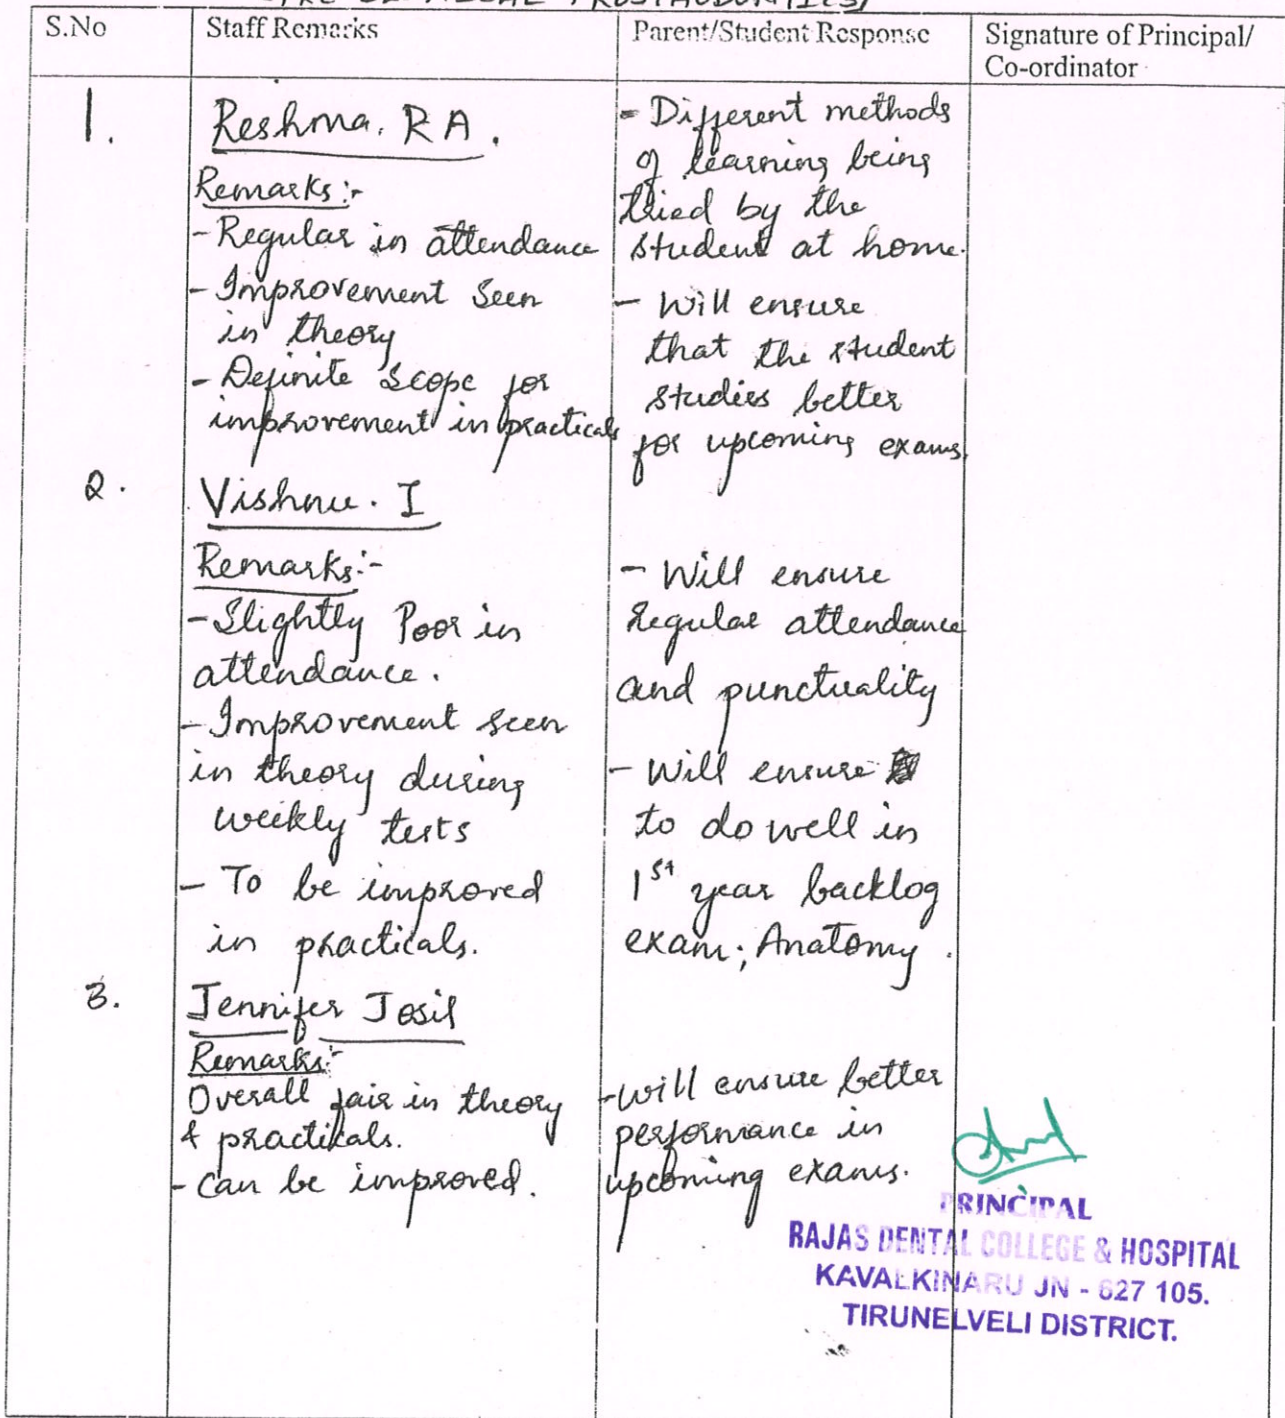 (PRE CLINICAL PROSTHODONTICS)
S.No
Staff Remarks
Parent/Student Response
Signature of Principal/
Co-ordinator
1.
Reshma. R A.
Remarks:-
- Regular in attendance
- Improvement seen
in theory
- Definite scope for
improvement in practicals
- Different methods
of learning being
tried by the
student at home.
- Will ensure
that the student
studies better
for upcoming exams.
2.
Vishnu. I
Remarks:-
- Slightly Poor in
attendance.
- Improvement seen
in theory during
weekly tests
- To be improved
in practicals.
- Will ensure
regular attendance
and punctuality
- Will ensure
to do well in
1st year backlog
exam; Anatomy.
3.
Jennifer Josil
Remarks:-
Overall fair in theory
& practicals.
- Can be improved.
- Will ensure better
performance in
upcoming exams.
PRINCIPAL
RAJAS DENTAL COLLEGE & HOSPITAL
KAVALKINARU JN - 627 105.
TIRUNELVELI DISTRICT.